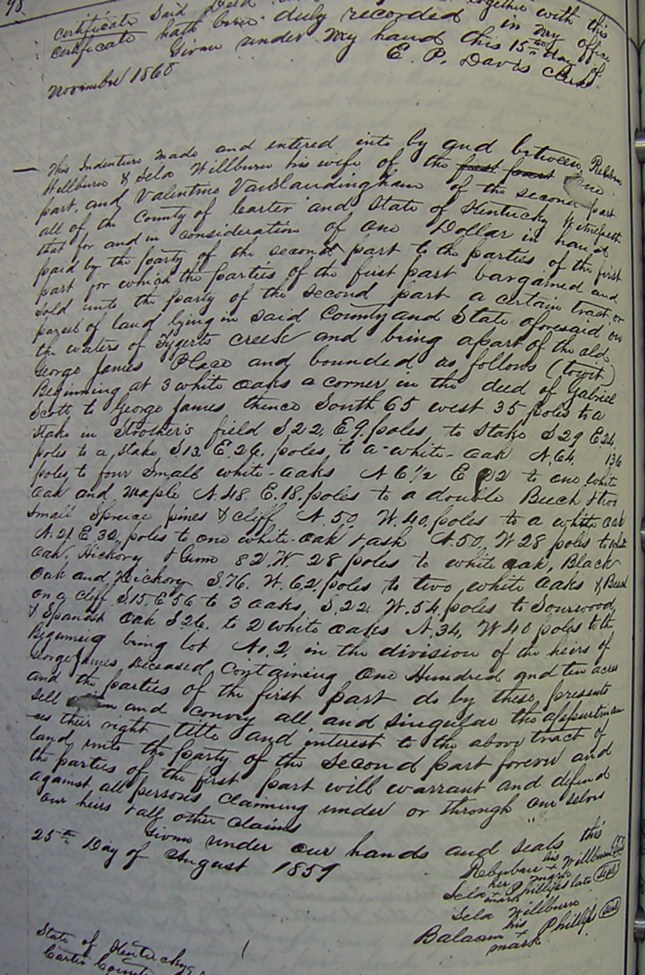 98
certificate Said Deed together with this
certificate hath been duly recorded in my office
Given under my hand this 15th day of
November 1860 E. P. Davis Clerk
This Indenture made and entered into by and between
Willburn & Sela Willburn his wife of the first part
part, and Valentine Vanslandingham of the second part
all of the County of Carter and State of Kentucky Witnesseth
that for and in consideration of one Dollar in hand
paid by the party of the second part to the parties of the first
part for which the parties of the first part bargained and
sold unto the party of the second part a certain tract or
parcel of land lying in said County and State aforesaid on
the waters of Tygerts creek and being a part of the old
George James Place and bounded as follows (towit)
Beginning at 3 white oaks a corner in the deed of Gabriel
Scott to George James thence South 65 west 35 poles to a
stake in Strother's field S 22 E 9. poles, to Stake S 29 E 24
poles to a stake, S 13 E. 26, poles, to a white-oak N. 64, 136
poles to four small white-oaks N 6½ E 22 to one white
oak and maple N. 48. E. 18. poles to a double Beech & two
small Spruce pines & cliff N. 50, W. 40, poles to a white oak
N. 21 E 32, poles to one white-oak & ash N. 50, W 28 poles to white
oak, Hickory & Gum 82, W. 28 poles to white oak, Black
oak and Hickory S. 76. W. 62 poles to two white oaks & Beech
on a cliff S 15. E 56 to 3 oaks, S, 22 W. 54, poles to Sourwood,
& Spanish oak S 26. to 2 white oaks N. 34, W 40 poles to the
Beginning being lot No, 2, in the division of the heirs of
George James, deceased, Containing One Hundred and ten acres
and the parties of the first part do by these presents
sell and convey all and singular the appurtenan
ces their right title and interest to the above tract of
land unto the party of the second part forever and
the parties of the first part will warrant and defend
against all persons claiming under or through our selves
our heirs & all other claims
Given under our hands and seals this
25th Day of August 1859
his
Willburn
her mark
Sela Phillips late
mark
Sela Willburn
his
Balaam + Phillips
mark
State of Kentucky
Carter County